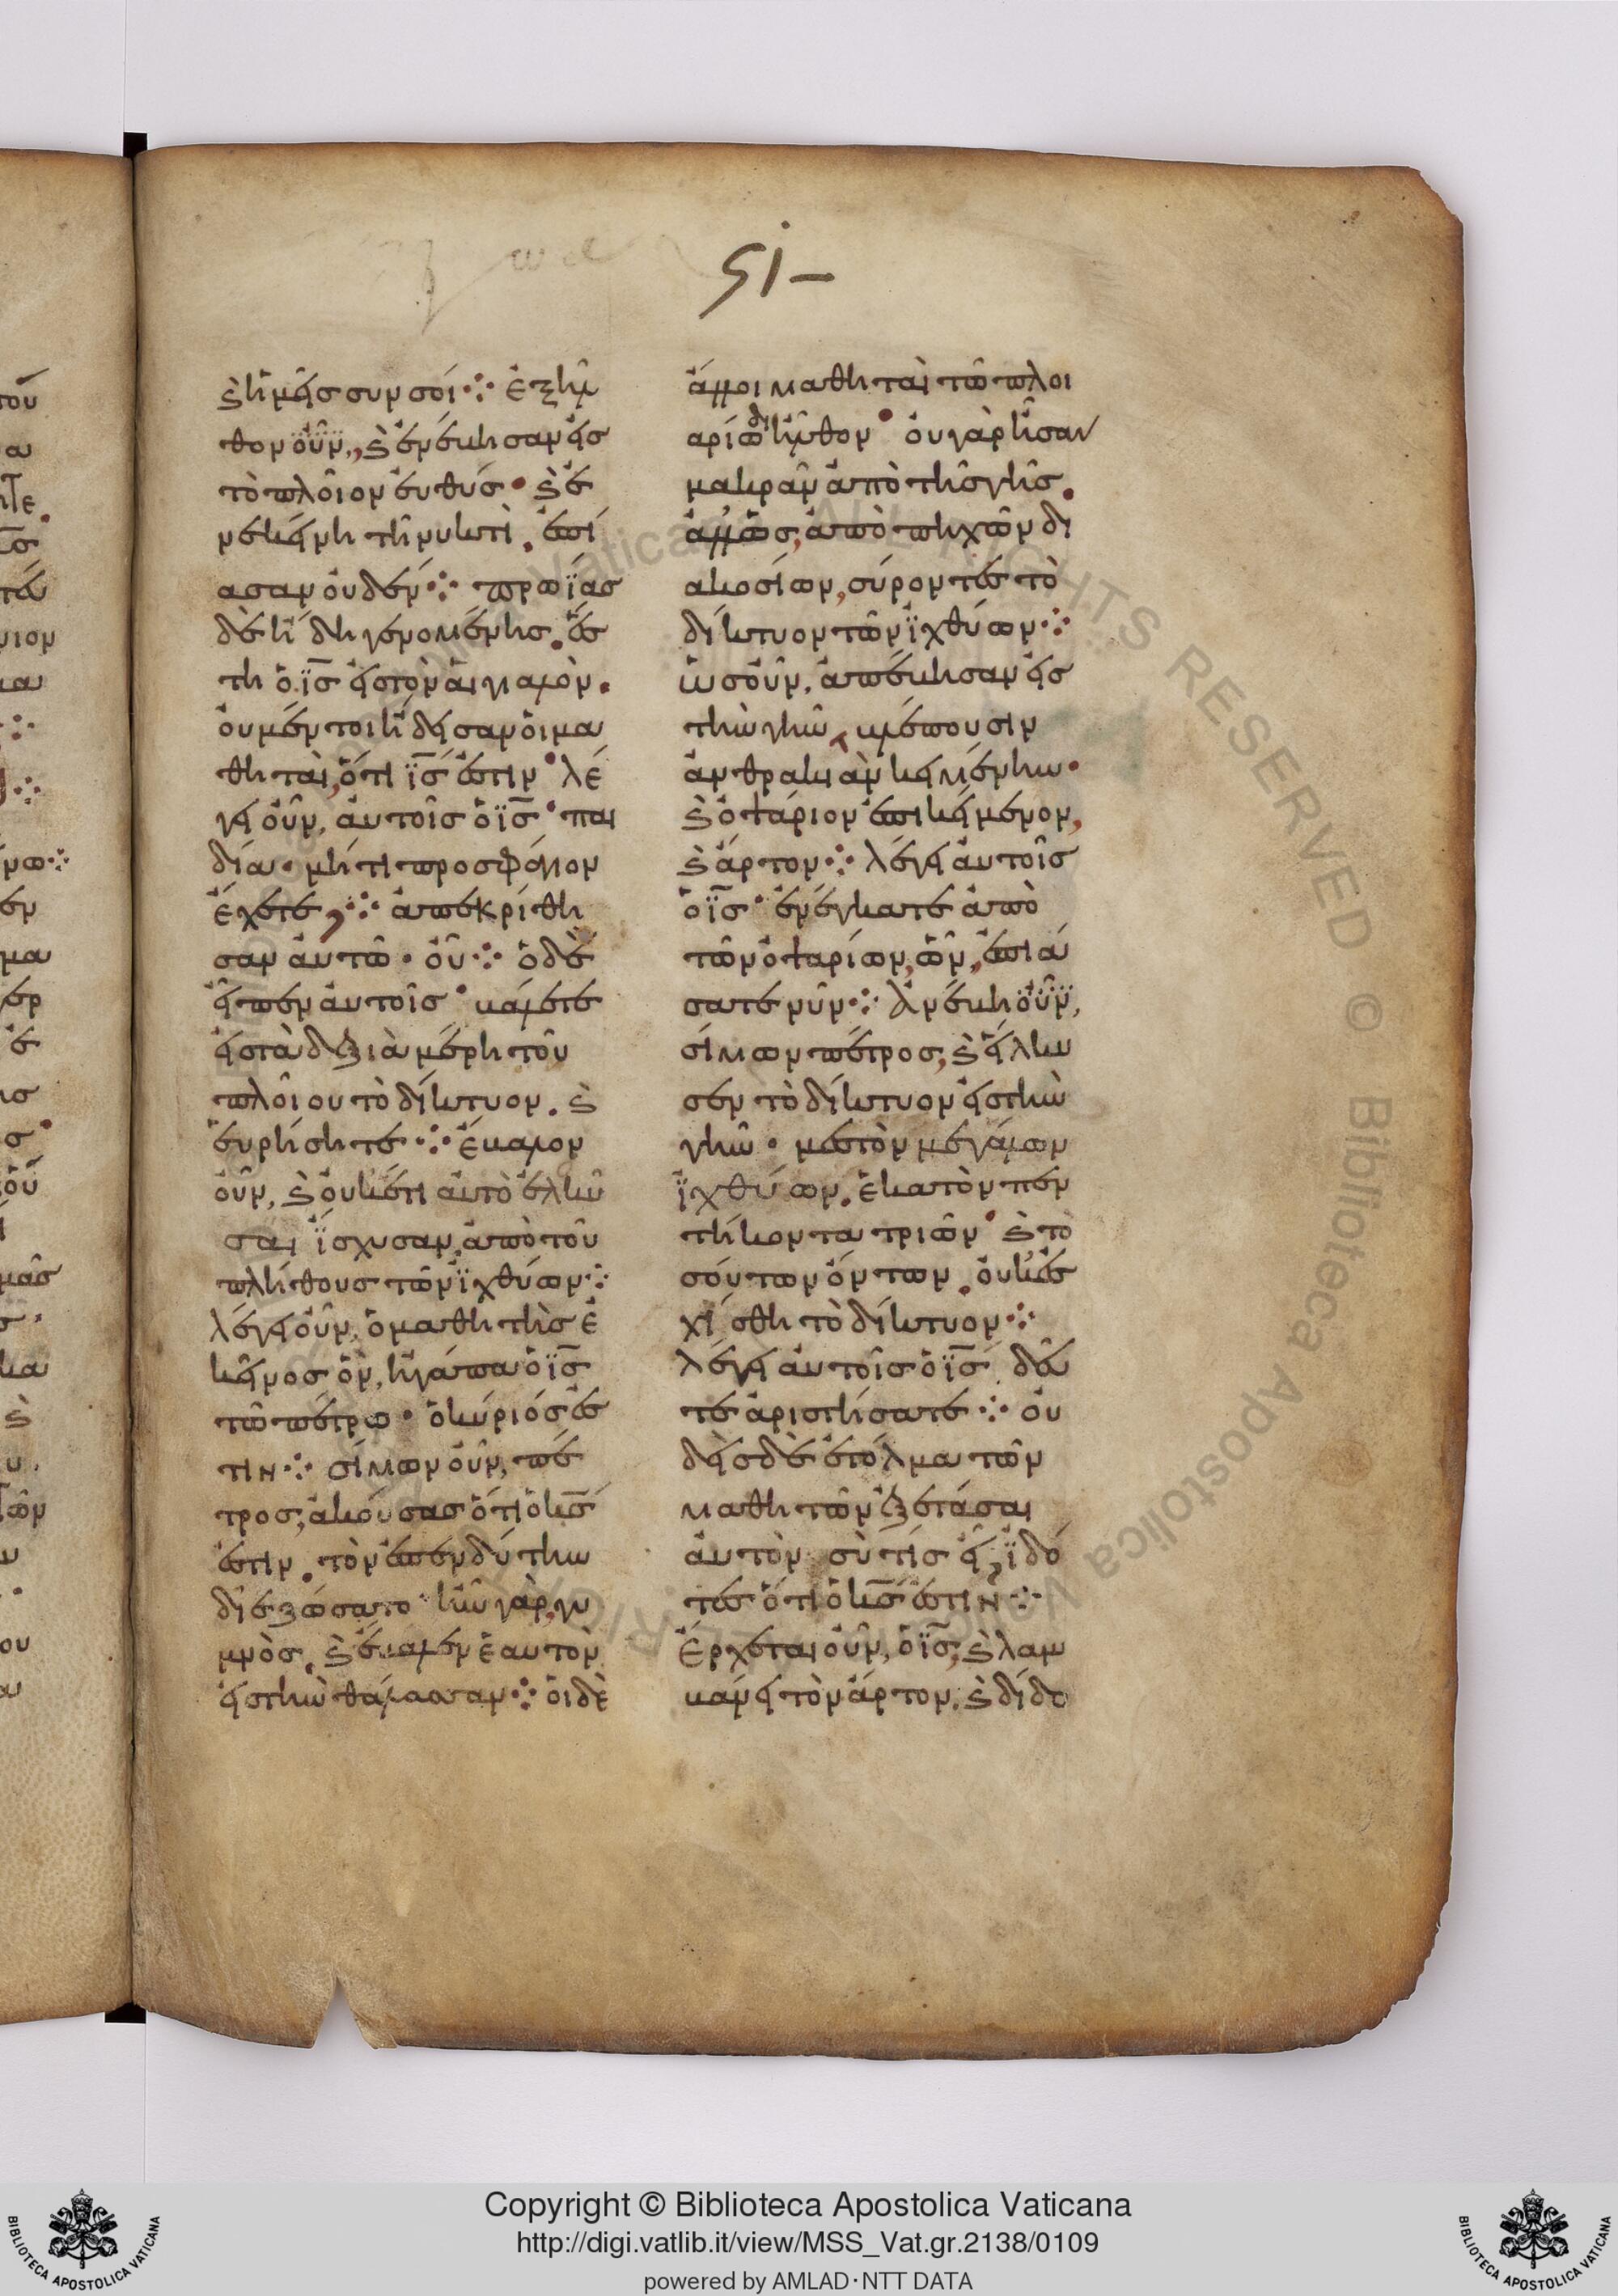 51-
ϗ ἡμεῖς συν σοί ⁘ ἐξῆλ
θον οὖν, ϗ ἐνέβησαν εἰς
τὸ πλοῖον εὐθύς · ϗ ἐ
κείνη τῆ νυκτὶ. ἐπί
ασαν οὐδέν ⁘ πρωΐας
δὲ ἤδη γενομένης. ἔσ
τη ὁ ις̅ εἰς τὸν αἰγιαλόν.
οὐ μέντοι ἤδεισαν οἱ μα
θηταὶ, ὅτι ις̅ ἐστιν · λέ
γει οὖν, αὐτοῖς ὁ ις̅ · παι
δία · μήτι προσφάγιον
ἔχετε, ⁘ ἀπεκρίθη
σαν αὐτῶ · οὔ ⁘ ὁ δὲ
εἶπεν αὐτοῖς · βάλετε
εἰς τὰ δεξιὰ μέρη τοῦ
πλοίου τὸ δίκτυον. ϗ
εὑρήσητε ⁘ ἔβαλον
οὖν, ϗ οὐκέτι αὐτὸ ἑλκῦ
σαι ἴσχυσαν, ἀπὸ τοῦ
πλήθους τῶν ἰχθύων ⁘
λέγει οὖν, ὁ μαθητὴς ἐ
κεῖνος ὃν, ἠγάπα ὁ ις̅
τῶ πέτρω · ὁ κύριός ἐσ
τιν ⁘ σίμων οὖν, πέ
τρος, ἀκούσας ὅτι ὁ κς̅
ἐστιν. τὸν ἐπενδύτην
διεζώσατο · ἦν γὰρ, γυ
μνὸς. ϗ ἔβαλεν ἑαυτὸν
εἰς τὴν θάλασσαν ⁘ οἱ δὲ
ἄλλοι μαθηταὶ τῶ πλοι
αρίω δὴ ἦλθον · οὐ γὰρ ἦσαν
μακρὰν ἀπὸ τῆς γῆς.
ἀλλ' ὡς, ἀπὸ πηχῶν δι
ακοσίων, σύροντες τὸ
δίκτυον τῶν ἰχθύων ⁘
ὡς οὖν, ἀπέβησαν εἰς
τὴν γῆν, βλέπουσιν
ἀνθρακιὰν κειμένην ·
ϗ ὀψάριον ἐπικείμενον,
ϗ ἄρτον ⁘ λέγει αὐτοῖς
ὁ ις̅ · ἐνέγκατε ἀπὸ
τῶν ὀψαρίων, ὧν, ἐπιά
σατε νῦν ⁘ ἀνέβη οὖν,
σίμων πέτρος, ϗ εἵλκυ
σεν τὸ δίκτυον εἰς τὴν
γῆν · μεστὸν μεγάλων
ἰχθύων. ἑκατὸν πεν
τήκοντα τριῶν · ϗ το
σούτων ὄντων. οὐκ ἐσ
χίσθη τὸ δίκτυον ⁘
λέγει αὐτοῖς ὁ ις̅. δεῦ
τε ἀριστήσατε ⁘ οὐ
δεὶς δὲ ἐτόλμα τῶν
μαθητῶν ἐξετάσαι
αὐτὸν σὺ τίς εἶ, εἰδό
τες ὅτι ὁ κς̅ ἐστιν ⁘
ἔρχεται οὖν, ὁ ις̅, ϗ λαμ
βάνει τὸν ἄρτον, ϗ δίδω
Copyright © Biblioteca Apostolica Vaticana
http://digi.vatlib.it/view/MSS_Vat.gr.2138/0109
powered by AMLAD·NTT DATA